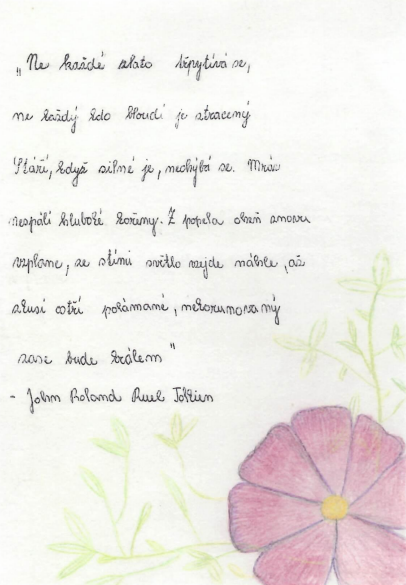 „Ne každé zlato třpytívá se,
ne každý kdo bloudí je ztracený
Stáří, když silné je, neohýbá se. Mráz
nespálí hluboké kořeny. Z popela oheň znovu
vzplane, ze stínů světlo vzejde náhle, až
zkusí ostří polámané, nekorunovaný
zase bude králem"
- John Roland Ruel Tolkien